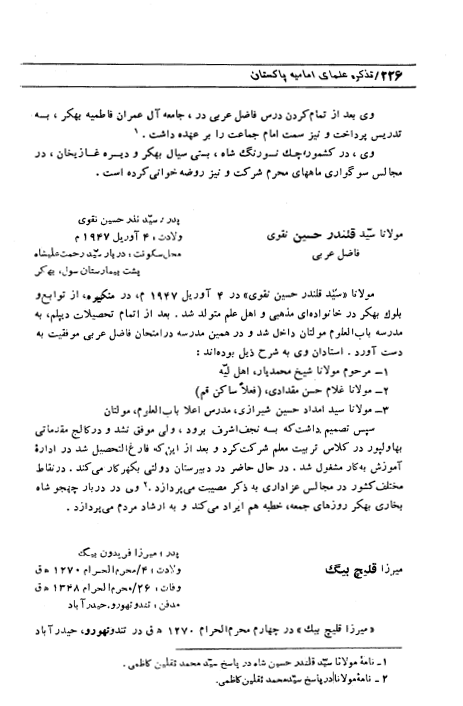 ۲۲۶/تذکره علمای امامیه پاکستان
وی بعد از تمام‌کردن درس فاضل عربی در، جامعه آل عمران فاطمیه بهکر، به
تدریس پرداخت و نیز سمت امام جماعت را بر عهده داشت. ۱
وی، در کشمور، چك نسورنگ شاه، بستی سیال بهکر و دیره غازیخان، در
مجالس سوگواری ماههای محرم شرکت و نیز روضه‌خوانی‌کرده است.
مولانا سیّد قلندر حسین نقوی
فاضل عربی
پدر: سیّد نذر حسین نقوی
ولادت: ۴ آوریل ۱۹۴۷ م
محل‌سکونت: دربار سیّد رحمت‌علیشاه
پشت بیمارستان سول، بهکر
مولانا «سیّد قلندر حسین نقوی» در ۴ آوریل ۱۹۴۷ م، در منکیره، از توابع و
بلوك بهکر در خانواده‌ای مذهبی و اهل علم متولد شد. بعد از اتمام تحصیلات دیپلم، به
مدرسه باب‌العلوم مولتان داخل شد و در همین مدرسه درامتحان فاضل عربی موفقیت به
دست آورد. استادان وی به شرح ذیل بوده‌اند:
۱ـ مرحوم مولانا شیخ محمدیار، اهل لیّه
۲ـ مولانا غلام حسن مقدادی، (فعلاً ساکن قم)
۳ـ مولانا سید امداد حسین شیرازی، مدرس اعلا باب‌العلوم، مولتان
سپس تصمیم داشت‌که بسه نجف‌اشرف برود، ولی موفق نشد و درکالج مقدماتی
بهاولپور در کلاس تربیت معلم شرکت‌کرد و بعد از این‌که فارغ‌التحصیل شد در ادارۀ
آموزش به‌کار مشغول شد. در حال حاضر در دبیرستان دولتی بکهرکار می‌کند. درنقاط
مختلف‌کشور در مجالس عزاداری به ذکر مصیبت می‌پردازد. ۲ وی در دربار چهجو شاه
بخاری بهکر روزهای جمعه، خطبه هم ایراد می‌کند و به ارشاد مردم می‌پردازد.
میرزا قلیچ بیگ
پدر: میرزا فریدون بیگ
ولادت: ۴/محرم‌الحرام ۱۲۷۰ ه‍ ق
وفات: ۲۶/محرم‌الحرام ۱۳۴۸ ه‍ ق
مدفن: تندوتهورو، حیدرآباد
«میرزا قلیچ بیك» در چهارم محرم‌الحرام ۱۲۷۰ ه‍ ق در تندوتهورو، حیدرآباد
۱ـ نامۀ مولانا سیّد قلندر حسین شاه در پاسخ سیّد محمد ثقلین کاظمی.
۲ـ نامۀ‌مولانا/درپاسخ سیّدمحمد ثقلین‌کاظمی.